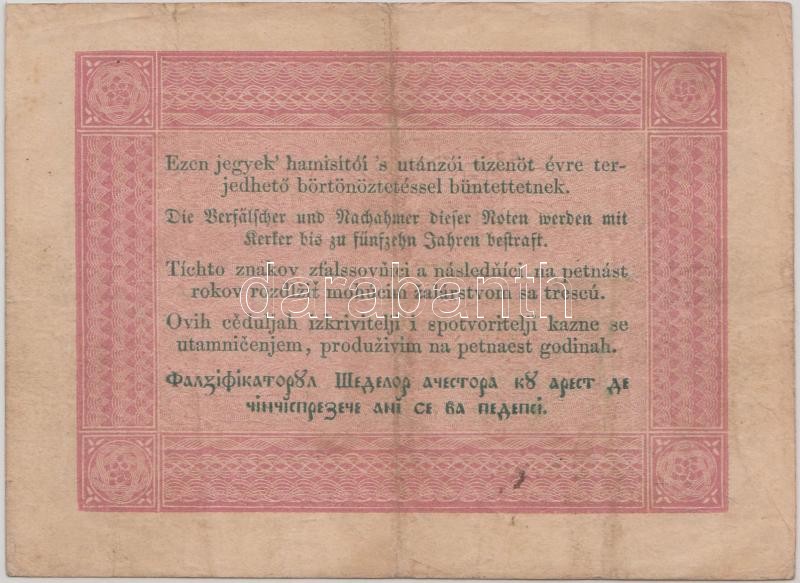 Ezen jegyek' hamisítói 's utánzói tizenöt évre ter-
jedhető börtönöztetéssel büntettetnek.
Die Verfälscher und Nachahmer dieser Noten werden mit
Kerker bis zu fünfzehn Jahren bestraft.
Tíchto znakov zfalssovňíci a následňíci na petnást
rokov rozdĺžiť mohúcim žalárstvom sa trescú.
darabanth
Ovih cěduljah izkrivitelji i spotvoritelji kazne se
utamničenjem, produživim na petnaest godinah.
Фалзіфікаторꙋл Шеделор ачестора кꙋ арест де
чінчіспрезече ані се ва педепсі.